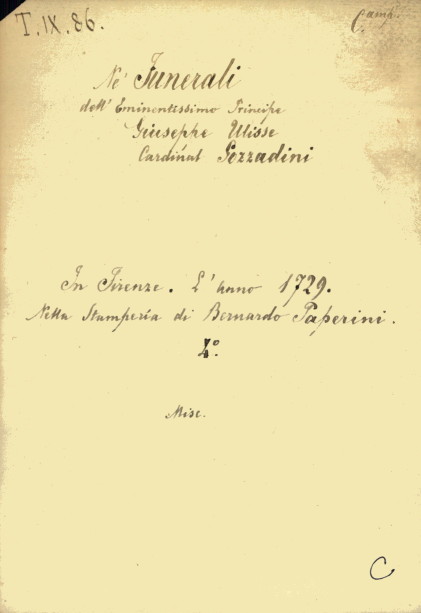 T. IX. 86.
C. Camp.
Ne' Funerali
dell' Eminentissimo Principe
Giusephe Ulisse
Cardinal Gozzadini
In Firenze. L'hano 1729.
Nella Stamperia di Bernardo Paperini.
4º.
Misc.
C